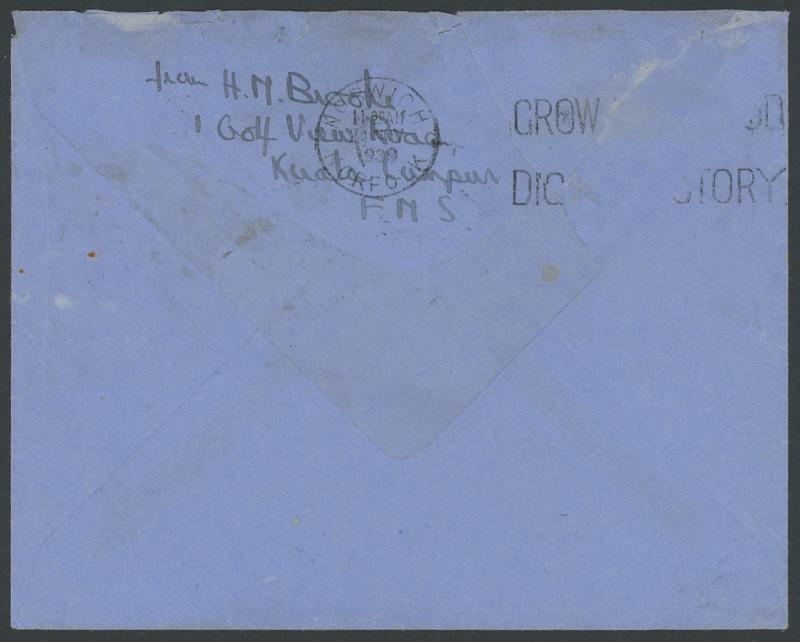 from H.M. Brooke
1 Golf View Road,
Kuala Lumpur
F M S
NORWICH
NORFOLK
GROW
DIG